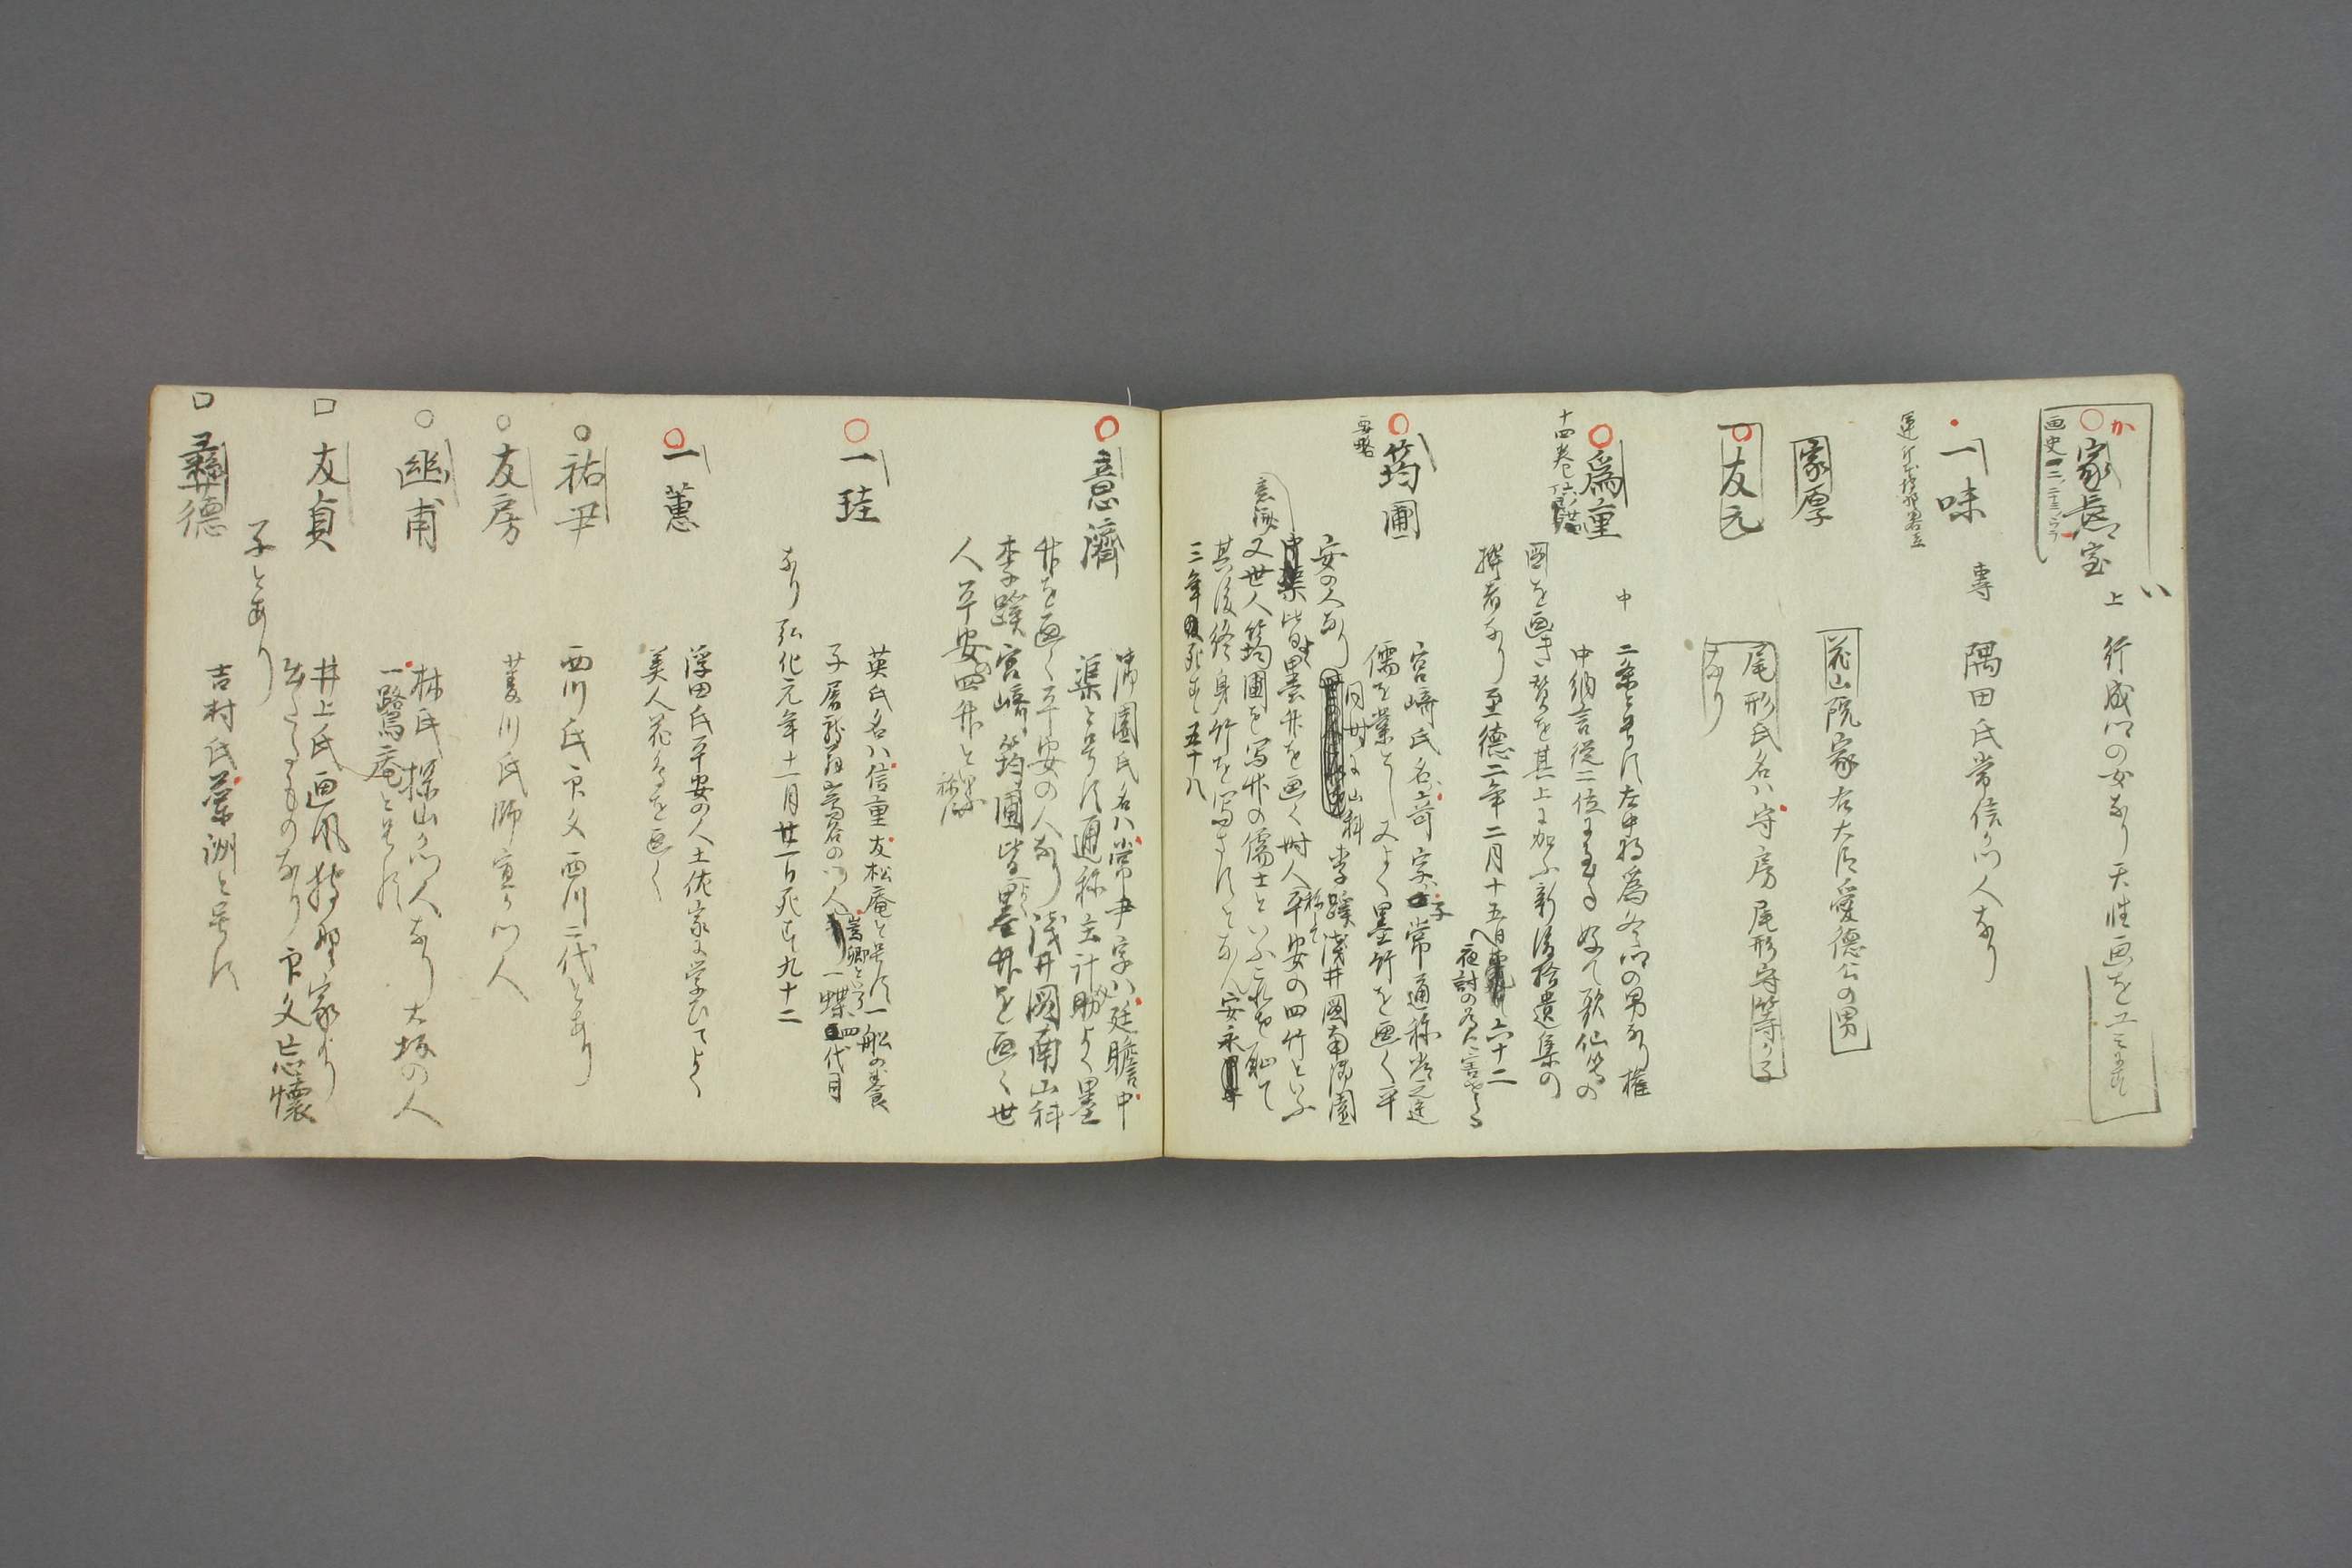 か
い
家長室
画史
上
行成卿の女なり天性画を工ミ
一味
専
隅田氏常信の門人なり
家厚
花山院家右大臣愛徳公の男
友元
尾形氏名ハ守房尾形守等ノ子
なり
為重
十四
中
二条と号す左中将為冬卿の男なり権
中納言従二位に至る好て歌仙等の
図を画き賛を其上に加ふ新後拾遺集の
撰者なり至徳二年二月十五日六十二
夜討の為に害せらる
筠圃
要略
宮崎氏名ハ奇字ハ子常通称常之進
儒を業とし又よく墨竹を画く平
安の人なり
同時に山科李蹊浅井図南御園
中渠皆墨竹を画く時人平安の四竹といふ
称して
意済
又世人筠圃を写竹の儒士といふこれを恥て
其後終身竹を写さすとなん安永
三年死す五十八
意済
御園氏名ハ常尹字ハ廷瞻中
渠と号す通称主計助よく墨
竹を画く平安の人なり浅井図南山科
李蹊宮崎筠圃皆墨竹を画く世
人平安四竹と
称す
一珪
英氏名ハ信重友松庵と号す一舩の養
子屋嵩谷の門人
嵩卿と号
一蝶四代目
なり弘化元年十一月廿一日死す九十二
一蕙
浮田氏平安の人土佐家に学ひてよく
美人花鳥を画く
祐尹
西川氏印文西川二代とあり
友房
菱川氏師宣の門人
幽甫
林氏探山の門人なり大坂の人
一鷺庵と号す
友貞
井上氏画風狩野家より
出たるものなり印文忘懐
子とあり
彝徳
吉村氏蘭洲と号す